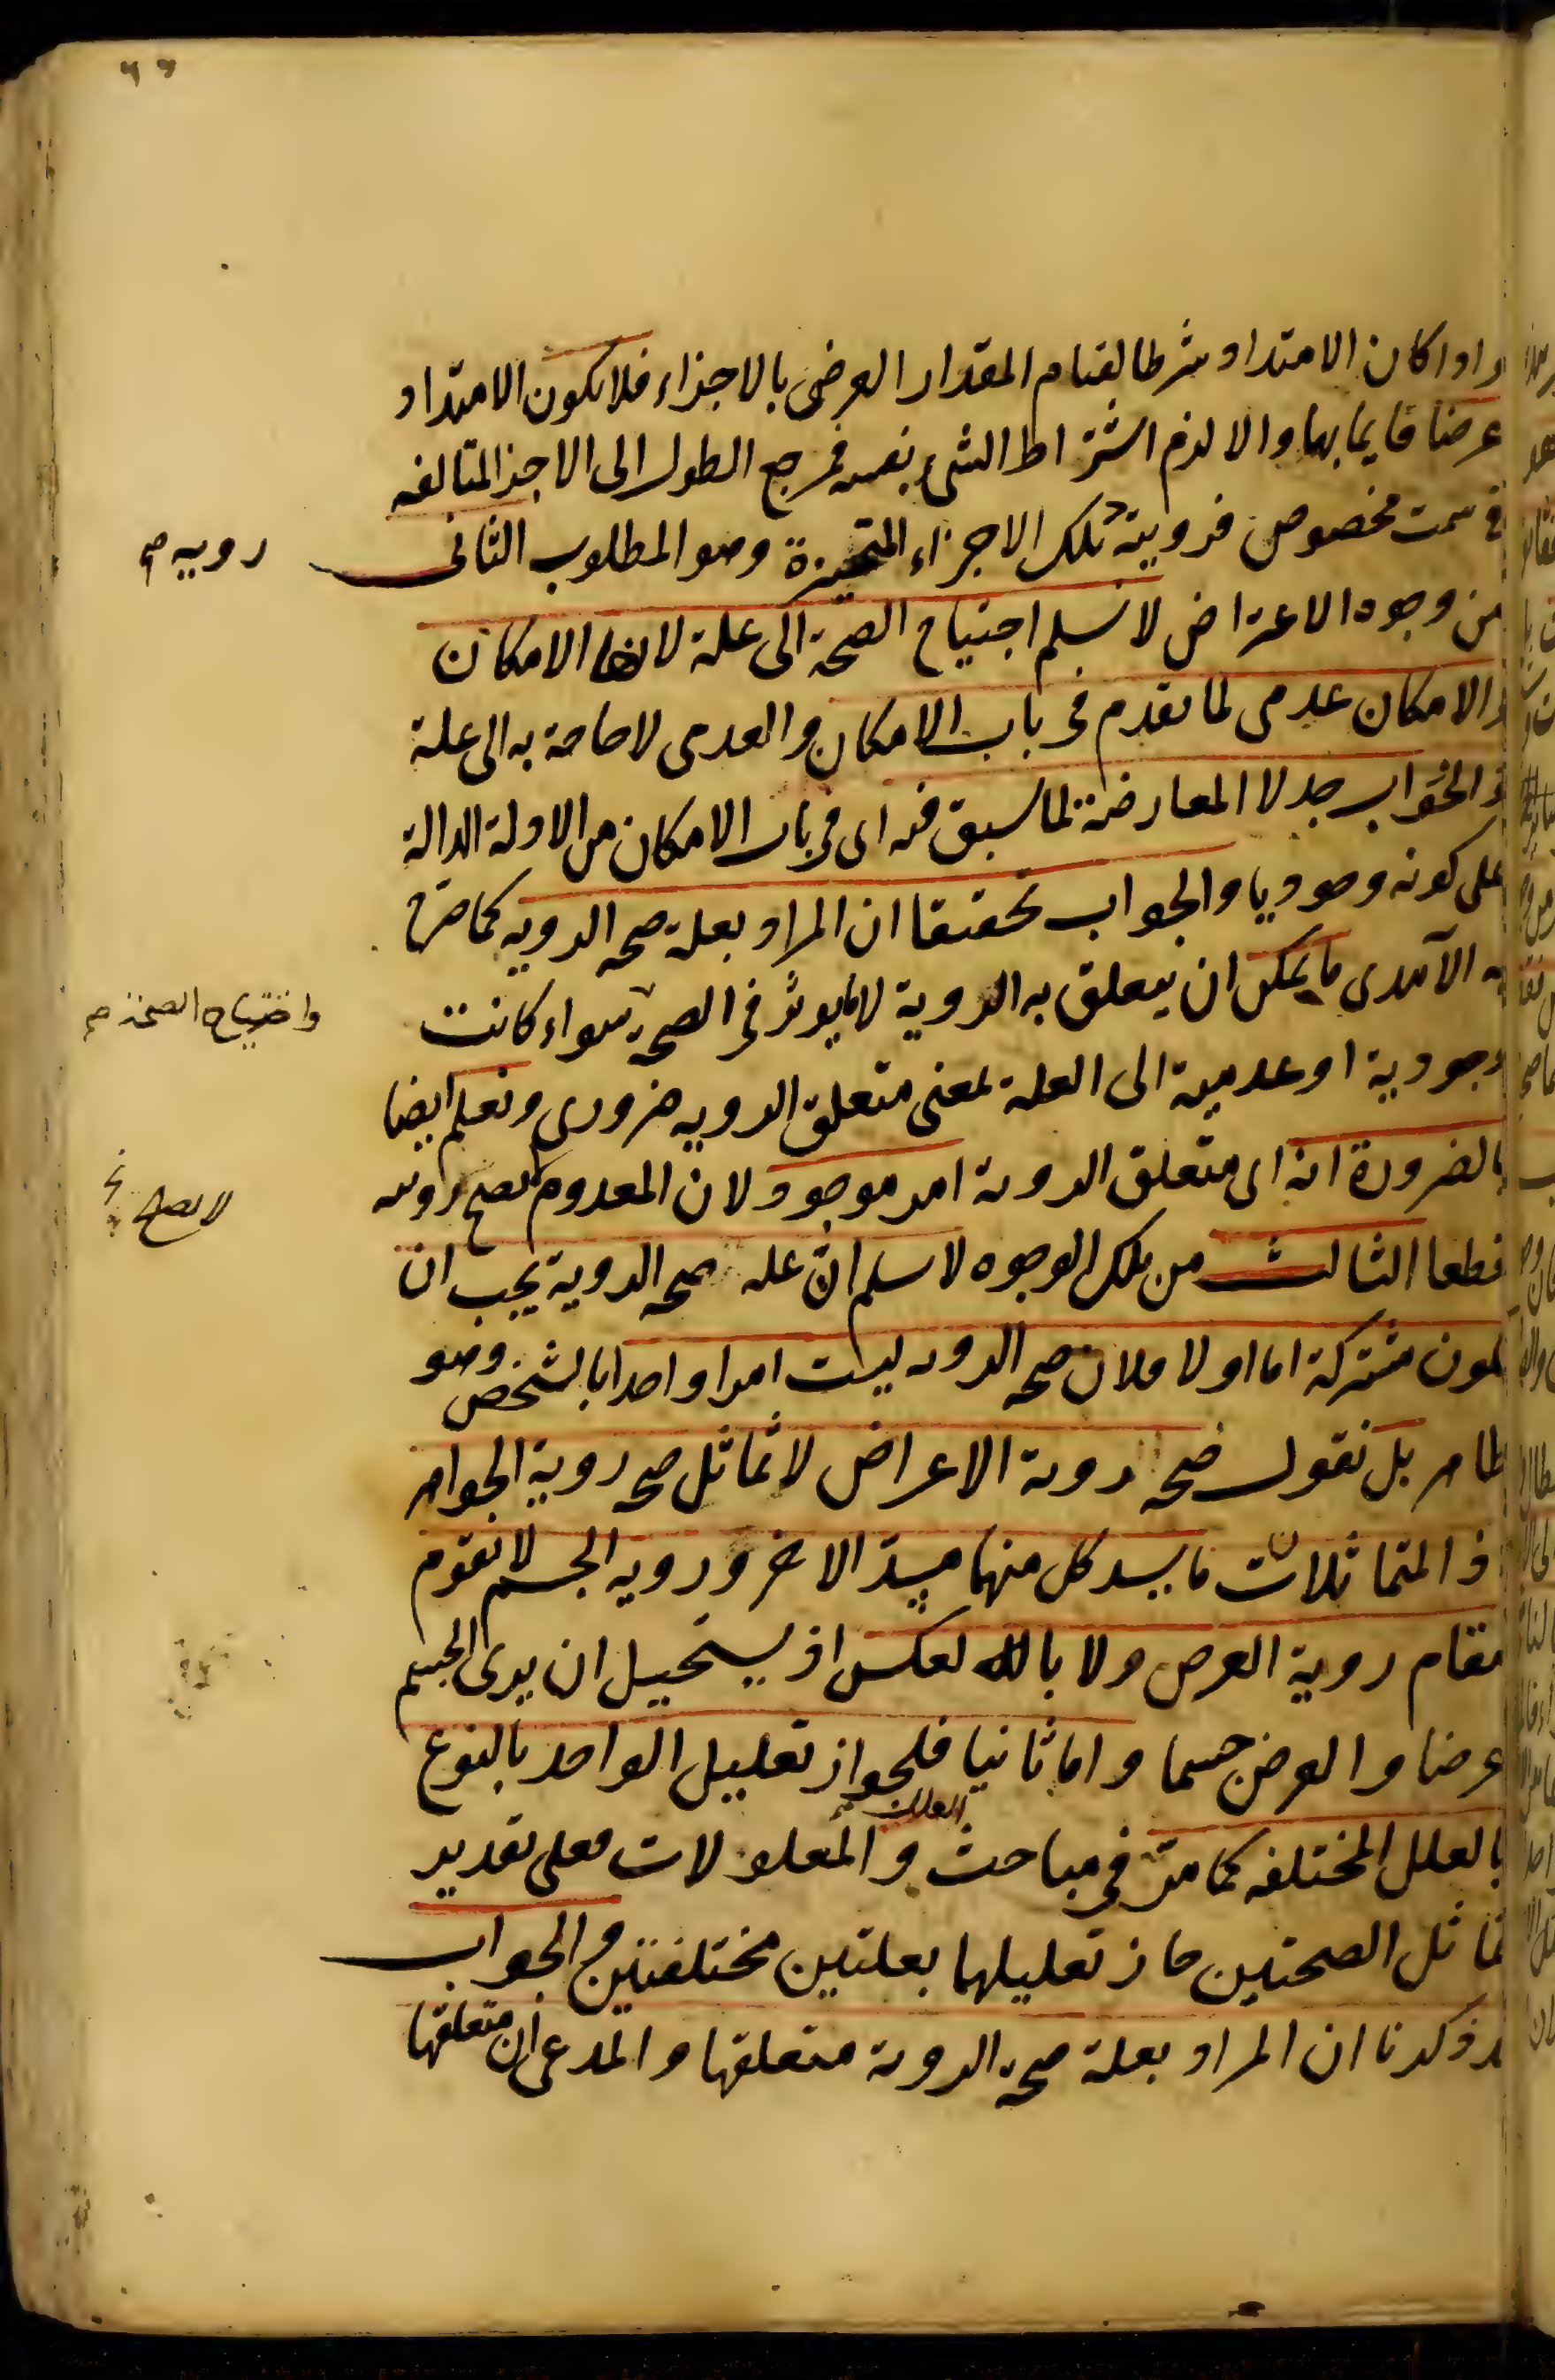 واذا كان الامتداد شرطا لقيام المقدار العرضى بالاجزاء فلا يكون الامتداد
عرضا قايما بها والا لزم اشتراط الشىء بنفسه فمرجع الطول الى الاجزا المتالفه
فى سمت مخصوص فروية تلك الاجزاء المتحيزة وهو المطلوب الثانى
رويه صح
من وجوه الاعتراض لا نسلم احتياج الصحة الى علة لانها الامكان
والامكان عدمى لما تقدم فى باب الامكان والعدمى لا حاجة به الى علة
والجواب جدلا المعارضة لما سبق فيه اى فى باب الامكان من الادلة الدالة
على كونه وجوديا والجواب تحقيقا ان المراد بعلة صحه الرويه كما صرح
به الآمدى ما يمكن ان يتعلق به الروية لا ما يوثر فى الصحة سواء كانت
واحتياج الصحة صح
وجودية او عدمية الى العلة بمعنى متعلق الرويه ضرورى ونعلم ايضا
بالضرورة انه اى متعلق الروية امر موجود لان المعدوم يصح رويته
لا يصح
قطعا الثالث من تلك الوجوه لا نسلم ان علة صحه الروية يجب ان
يكون مشتركة اما اولا فلان صحه الرويه ليست امرا واحدا بالشخص وهو
ظاهر بل نقول صحة روية الاعراض لا تماثل صحه روية الجواهر
اذ المتماثلات ما يسد كل منهما مسد الاخر ورويه الجسم لا تقوم
مقام روية العرض ولا بالعكس اذ يستحيل ان يرى الجسم
عرضا والعرض جسما واما ثانيا فلجواز تعليل الواحد بالنوع
بالعلل المختلفه كما مر فى مباحث العلل والمعلولات فعلى تقدير
تماثل الصحتين جاز تعليلهما بعلتين مختلفتين والجواب
قد ذكرنا ان المراد بعلة صحه الروية متعلقها والمدعى ان متعلقها